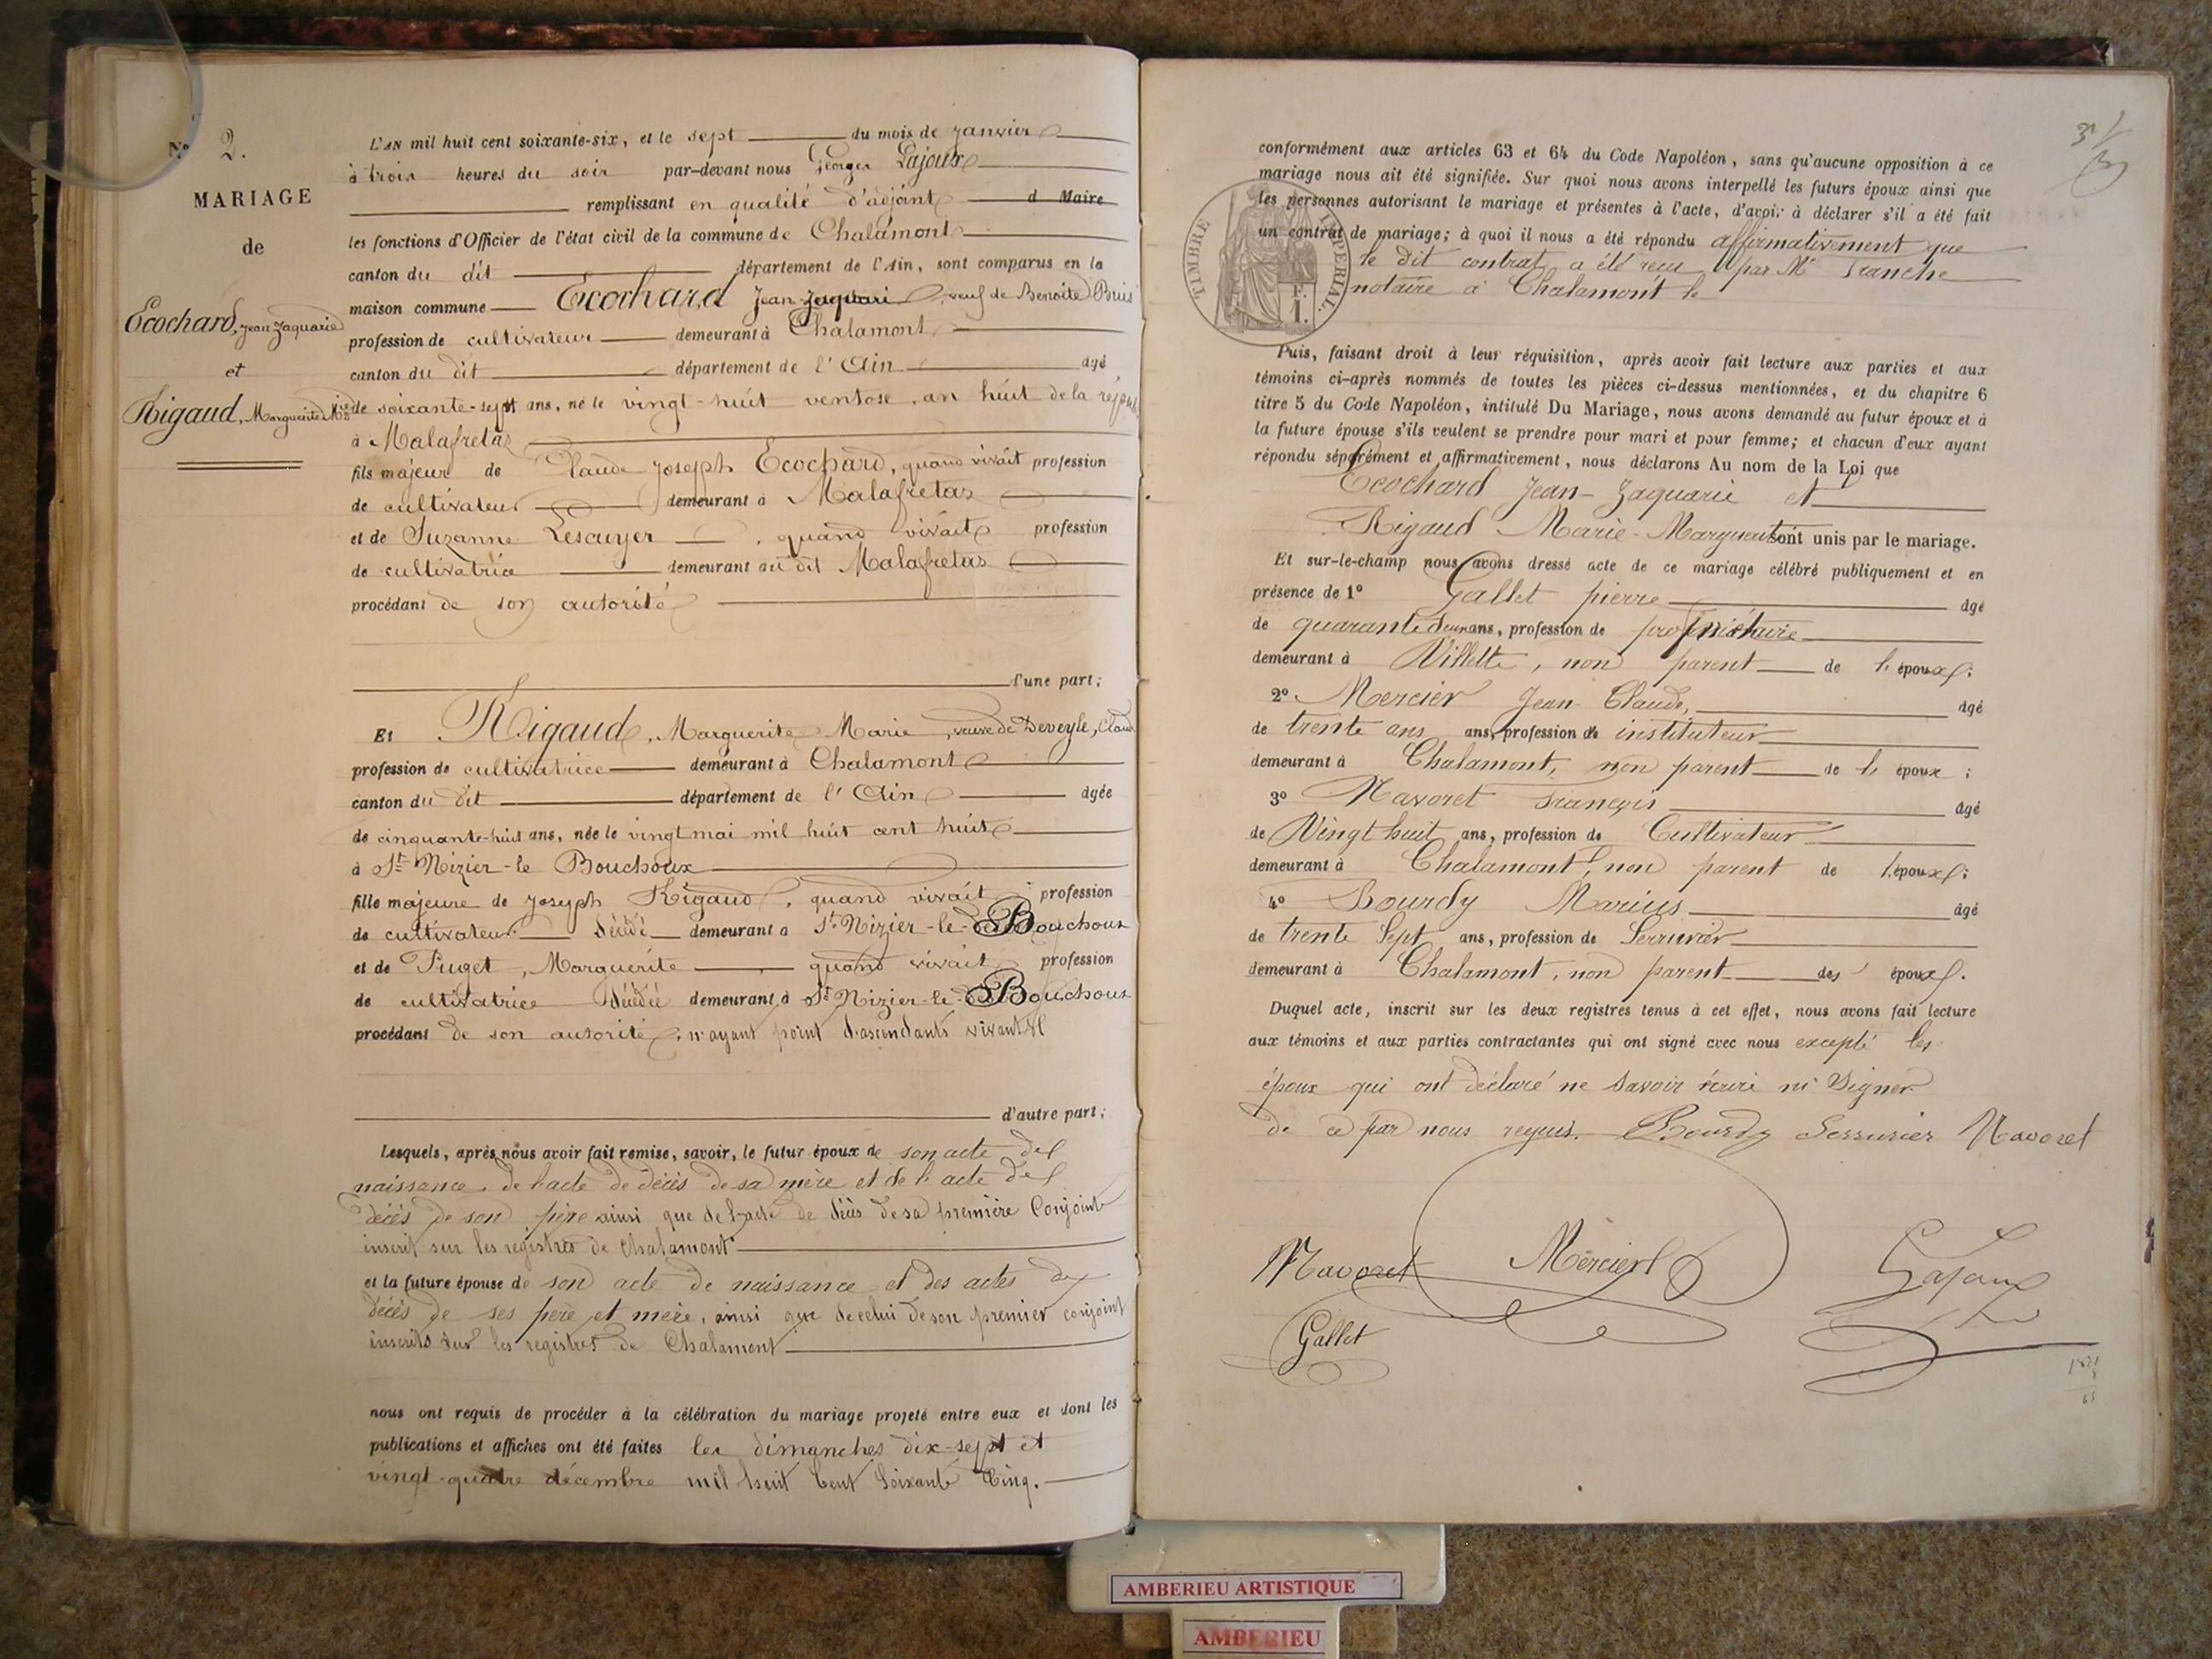 N° 2.
MARIAGE
de
Ecochard, Jean Zaquarie
et
Rigaud, Marguerite Mie
L'AN mil huit cent soixante-six, et le sept du mois de janvier
à trois heures du soir par-devant nous Georges Lajoux
remplissant en qualité d'adjoint d Maire
les fonctions d'Officier de l'état civil de la commune de Chalamont
canton du dit département de l'Ain, sont comparus en la
maison commune Ecochard Jean Zaquari, veuf de Benoite Bris
profession de cultivateur demeurant à Chalamont
canton du dit département de l'Ain agé
de soixante-sept ans, né le vingt-huit ventose, an huit de la répub
à Malafretas
fils majeur de Claude Joseph Ecochard, quand vivait profession
de cultivateur demeurant à Malafretas
et de Suzanne Lescuyer, quand vivait profession
de cultivatrice demeurant au dit Malafretas
procédant de son autorité
d'une part;
Et Rigaud, Marguerite Marie, veuve de Deveyle, Claud
profession de cultivatrice demeurant à Chalamont
canton du dit département de l'Ain agée
de cinquante-huit ans, née le vingt mai mil huit cent huit
à St Nizier-le Bouchoux
fille majeure de Joseph Rigaud, quand vivait profession
de cultivateur décédé demeurant a St Nizier-le-Bouchoux
et de Puget, Marguerite quand vivait profession
de cultivatrice décédée demeurant à St Nizier-le-Bouchoux
procédant de son autorité, n'ayant point d'ascendants vivants
d'autre part;
Lesquels, après nous avoir fait remise, savoir, le futur époux de son acte de
naissance, de l'acte de décès de sa mère et de l'acte de
décès de son père ainsi que de l'acte de décès de sa première Conjointe
inscrit sur les registres de Chalamont
et la future épouse de son acte de naissance et des actes de
décès de ses père et mère, ainsi que de celui de son premier conjoint
inscrits sur les registres de Chalamont
nous ont requis de procéder à la célébration du mariage projeté entre eux et dont les
publications et affiches ont été faites les dimanches dix-sept et
vingt-quatre décembre mil huit Cent Soixante Cinq.
conformément aux articles 63 et 64 du Code Napoléon, sans qu'aucune opposition à ce
mariage nous ait été signifiée. Sur quoi nous avons interpellé les futurs époux ainsi que
les personnes autorisant le mariage et présentes à l'acte, d'avoir à déclarer s'il a été fait
un contrat de mariage; à quoi il nous a été répondu affirmativement que
le dit contrat a été reçu par Me Franche
notaire à Chalamont le
TIMBRE IMPERIAL.
F.
1.
Puis, faisant droit à leur réquisition, après avoir fait lecture aux parties et aux
témoins ci-après nommés de toutes les pièces ci-dessus mentionnées, et du chapitre 6
titre 5 du Code Napoléon, intitulé Du Mariage, nous avons demandé au futur époux et à
la future épouse s'ils veulent se prendre pour mari et pour femme; et chacun d'eux ayant
répondu séparément et affirmativement, nous déclarons Au nom de la Loi que
Ecochard Jean-Zaquarie et
Rigaud Marie-Marguerite sont unis par le mariage.
Et sur-le-champ nous avons dressé acte de ce mariage célébré publiquement et en
présence de 1° Gallet pierre agé
de quarante deux ans, profession de propriétaire
demeurant à Villette, non parent de l'époux;
2° Mercier Jean Claude, agé
de trente ans ans, profession de instituteur
demeurant à Chalamont, non parent de l'époux;
3° Navoret François agé
de Vingt huit ans, profession de Cultivateur
demeurant à Chalamont, non parent de l'époux;
4° Bourdy Marius âgé
de trente Sept ans, profession de Serrurier
demeurant à Chalamont, non parent des époux.
Duquel acte, inscrit sur les deux registres tenus à cet effet, nous avons fait lecture
aux témoins et aux parties contractantes qui ont signé avec nous excepté les
époux qui ont déclaré ne savoir écrire ni Signer
de ce par nous requis. Bourdy Serrurier Navoret
Navoret Mercier Lajoux
Gallet
AMBERIEU ARTISTIQUE
AMBERIEU